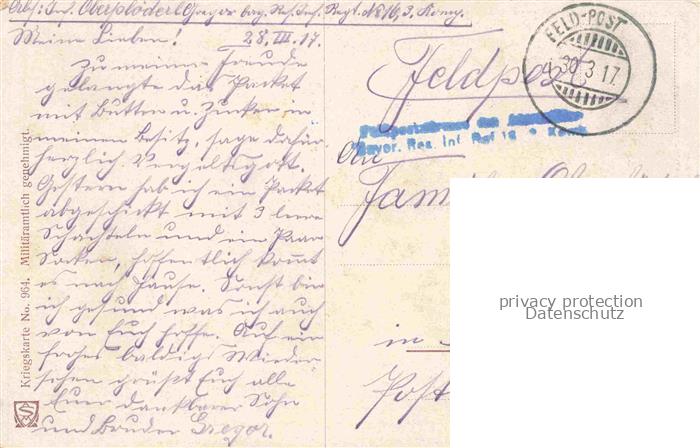 Abs: Inf. Oberplöderl Gregor bay. Res. Inf. Regt. No 16, 3. Komp.
Meine Lieben! 28. III. 17.
Zu meiner Freude
gelangte das Packet
mit Butter u. Zucker in
meinen Besitz, sage dafür
herzlich Vergeltsgott.
Gestern hab ich ein Packet
abgeschickt mit 3 leere
Schachteln und ein Paar
Socken, hoffentlich kommt
es nach Hause. Sonst bin
ich gesund was ich auch
von Euch hoffe. Auf ein
frohes baldiges Wieder-
sehen grüßt Euch alle
Euer dankbarer Sohn
und Bruder Gregor.
Kriegskarte No. 964. Militäramtlich genehmigt.
Feldpost
FELD-POST
30 3 17
Bayer. Res. Inf. Rgt. 16
An
in
Post
privacy protection
Datenschutz